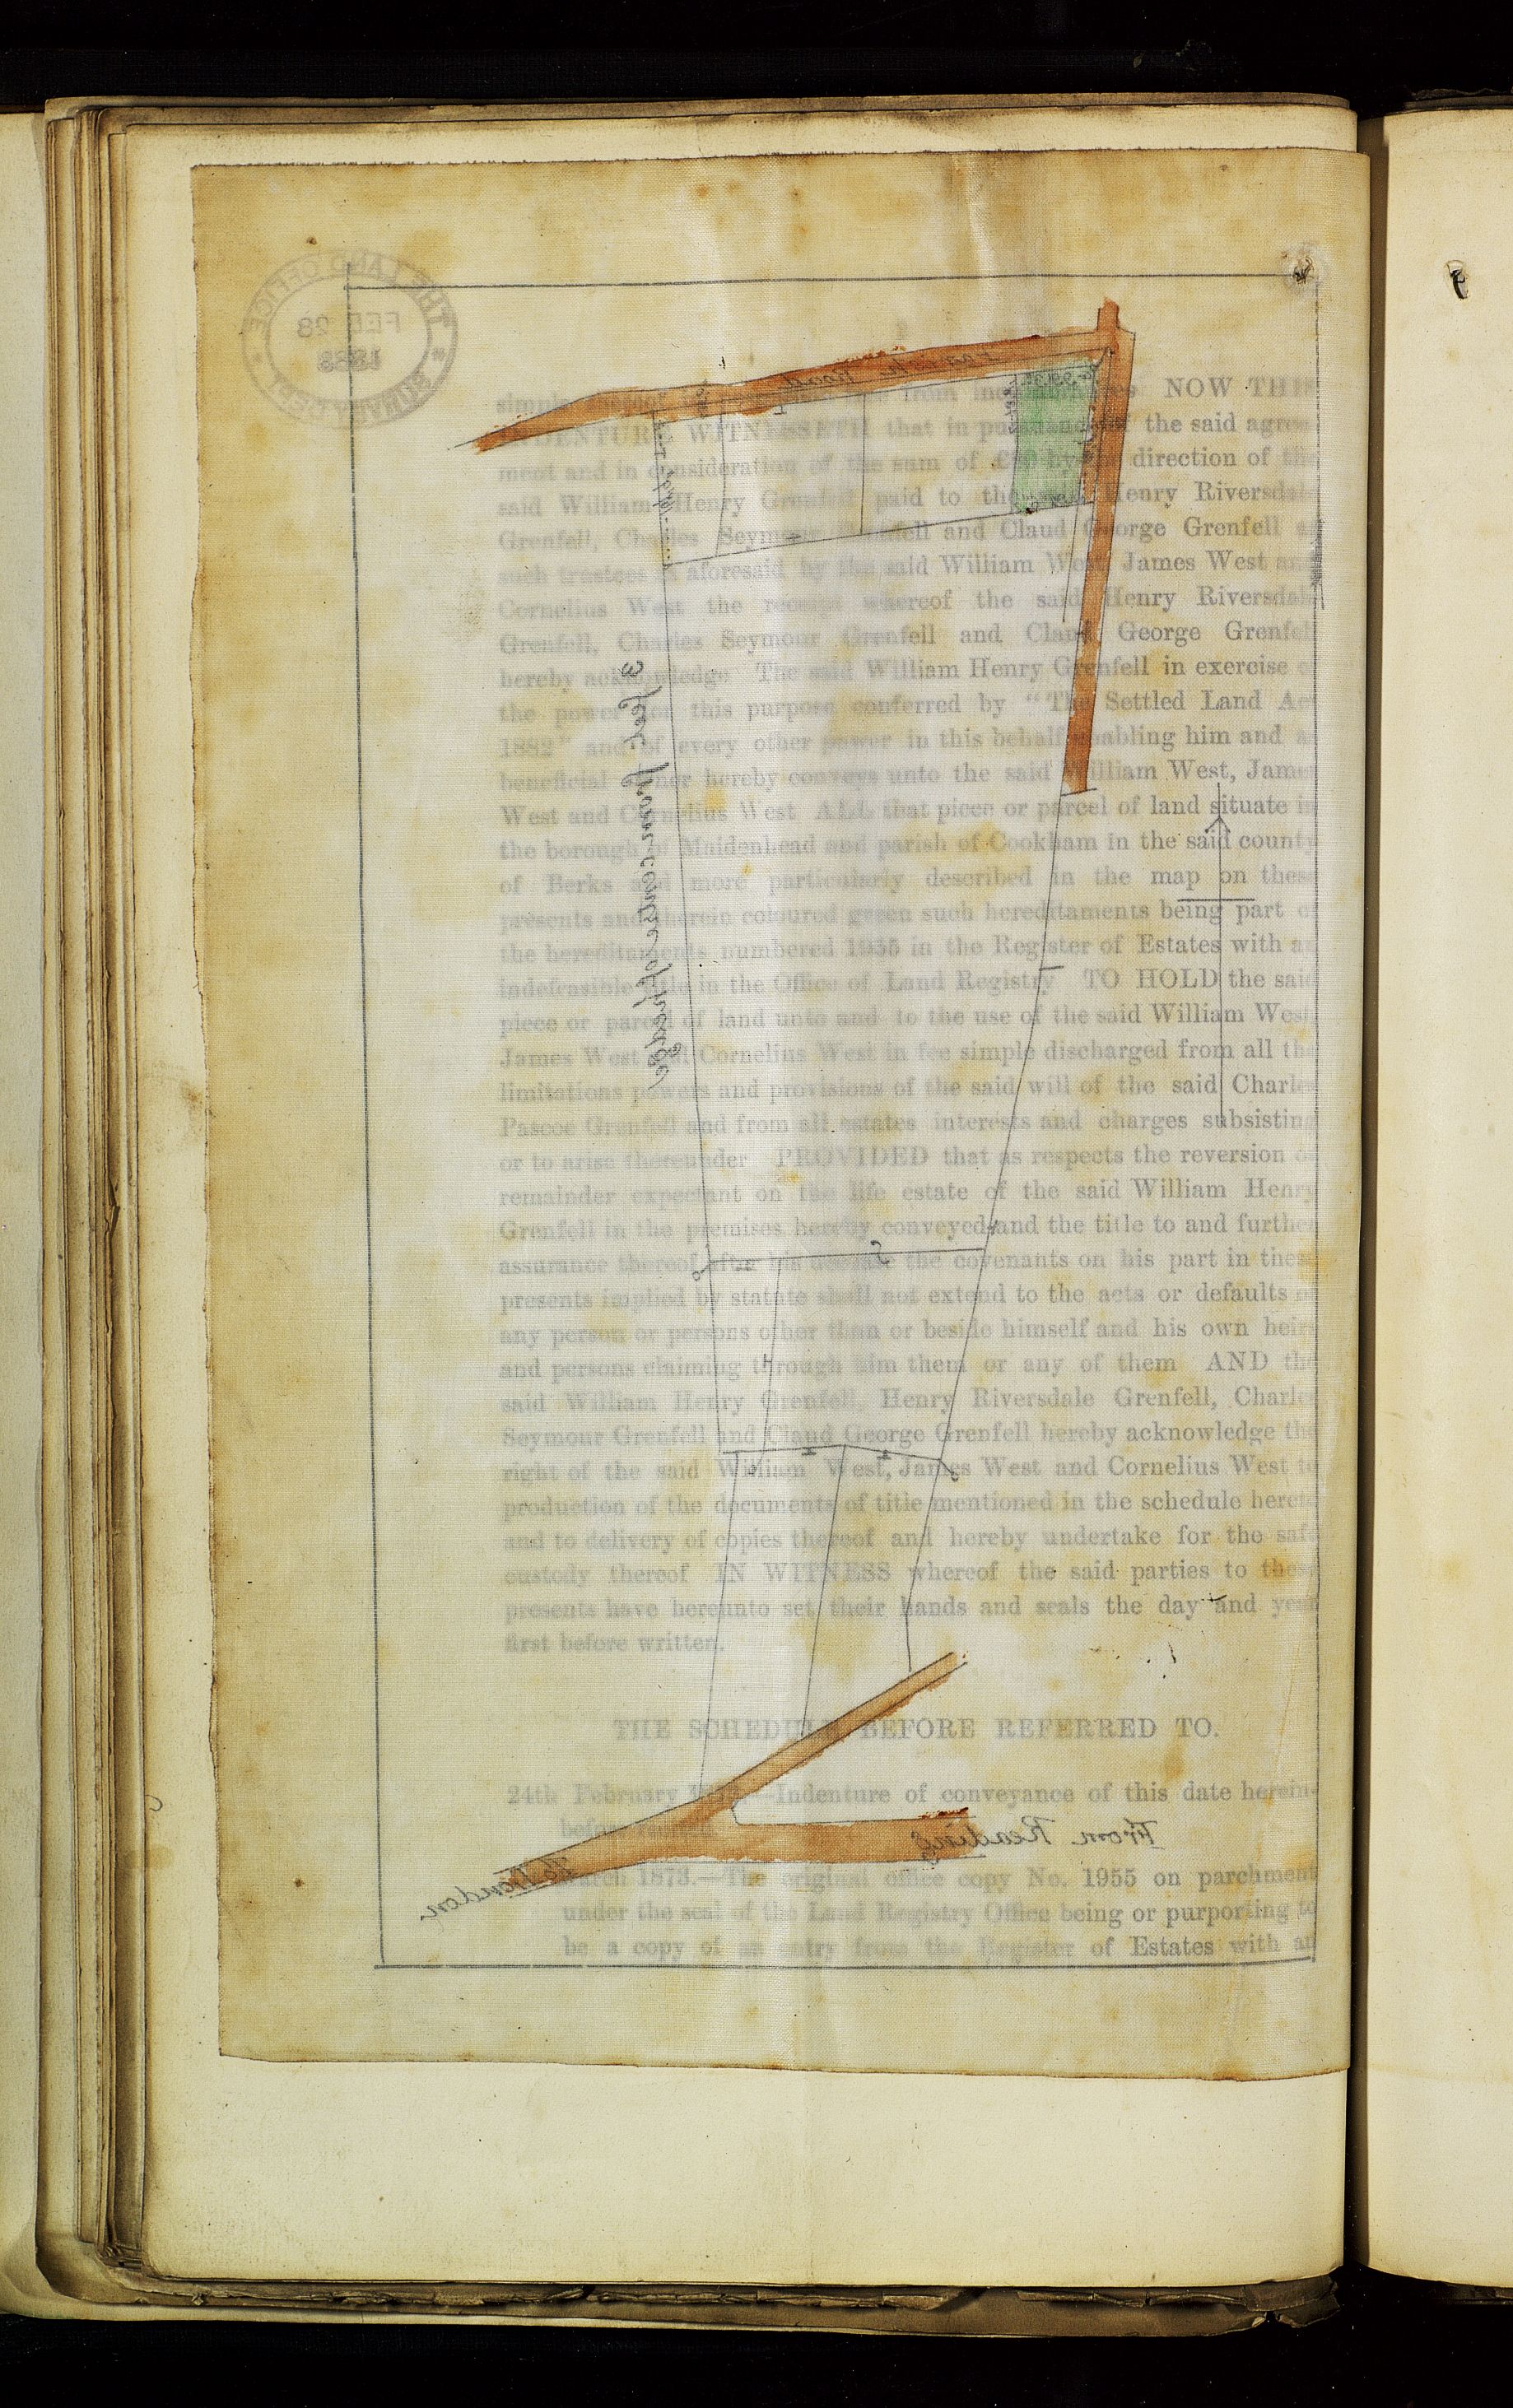 THE LAND OFFICE
FEB 28
1888
ROMANA LEGY
Road
simple
from
NOW THIS
INDENTURE WITNESSETH that in pursuance of the said agree-
ment and in consideration of the sum of £80 by the direction of the
said William Henry Grenfell paid to the said Henry Riversdale
Grenfell, Charles Seymour Grenfell and Claud George Grenfell as
such trustees as aforesaid by the said William West, James West and
Cornelius West the receipt whereof the said Henry Riversdale
Grenfell, Charles Seymour Grenfell and Claud George Grenfell
hereby acknowledge The said William Henry Grenfell in exercise of
the power for this purpose conferred by "The Settled Land Act
1882" and of every other power in this behalf enabling him and as
beneficial owner hereby conveys unto the said William West, James
West and Cornelius West ALL that piece or parcel of land situate in
the borough of Maidenhead and parish of Cookham in the said county
of Berks and more particularly described in the map on these
presents and therein coloured green such hereditaments being part of
the hereditaments numbered 1955 in the Register of Estates with an
indefeasible title in the Office of Land Registry TO HOLD the said
piece or parcel of land unto and to the use of the said William West,
James West and Cornelius West in fee simple discharged from all the
limitations powers and provisions of the said will of the said Charles
Pascoe Grenfell and from all estates interests and charges subsisting
or to arise thereunder PROVIDED that as respects the reversion or
remainder expectant on the life estate of the said William Henry
Grenfell in the premises hereby conveyed and the title to and further
assurance thereof after his decease the covenants on his part in these
presents implied by statute shall not extend to the acts or defaults of
any person or persons other than or beside himself and his own heirs
and persons claiming through him them or any of them AND the
said William Henry Grenfell, Henry Riversdale Grenfell, Charles
Seymour Grenfell and Claud George Grenfell hereby acknowledge the
right of the said William West, James West and Cornelius West to
production of the documents of title mentioned in the schedule hereto
and to delivery of copies thereof and hereby undertake for the safe
custody thereof IN WITNESS whereof the said parties to these
presents have hereunto set their hands and seals the day and year
first before written.
3 feet from centre of hedge
THE SCHEDULE BEFORE REFERRED TO.
24th February 1872.—Indenture of conveyance of this date herein-
before recited
From Reading
To London
March 1873.—The original office copy No. 1955 on parchment
under the seal of the Land Registry Office being or purporting to
be a copy of an entry from the Register of Estates with an